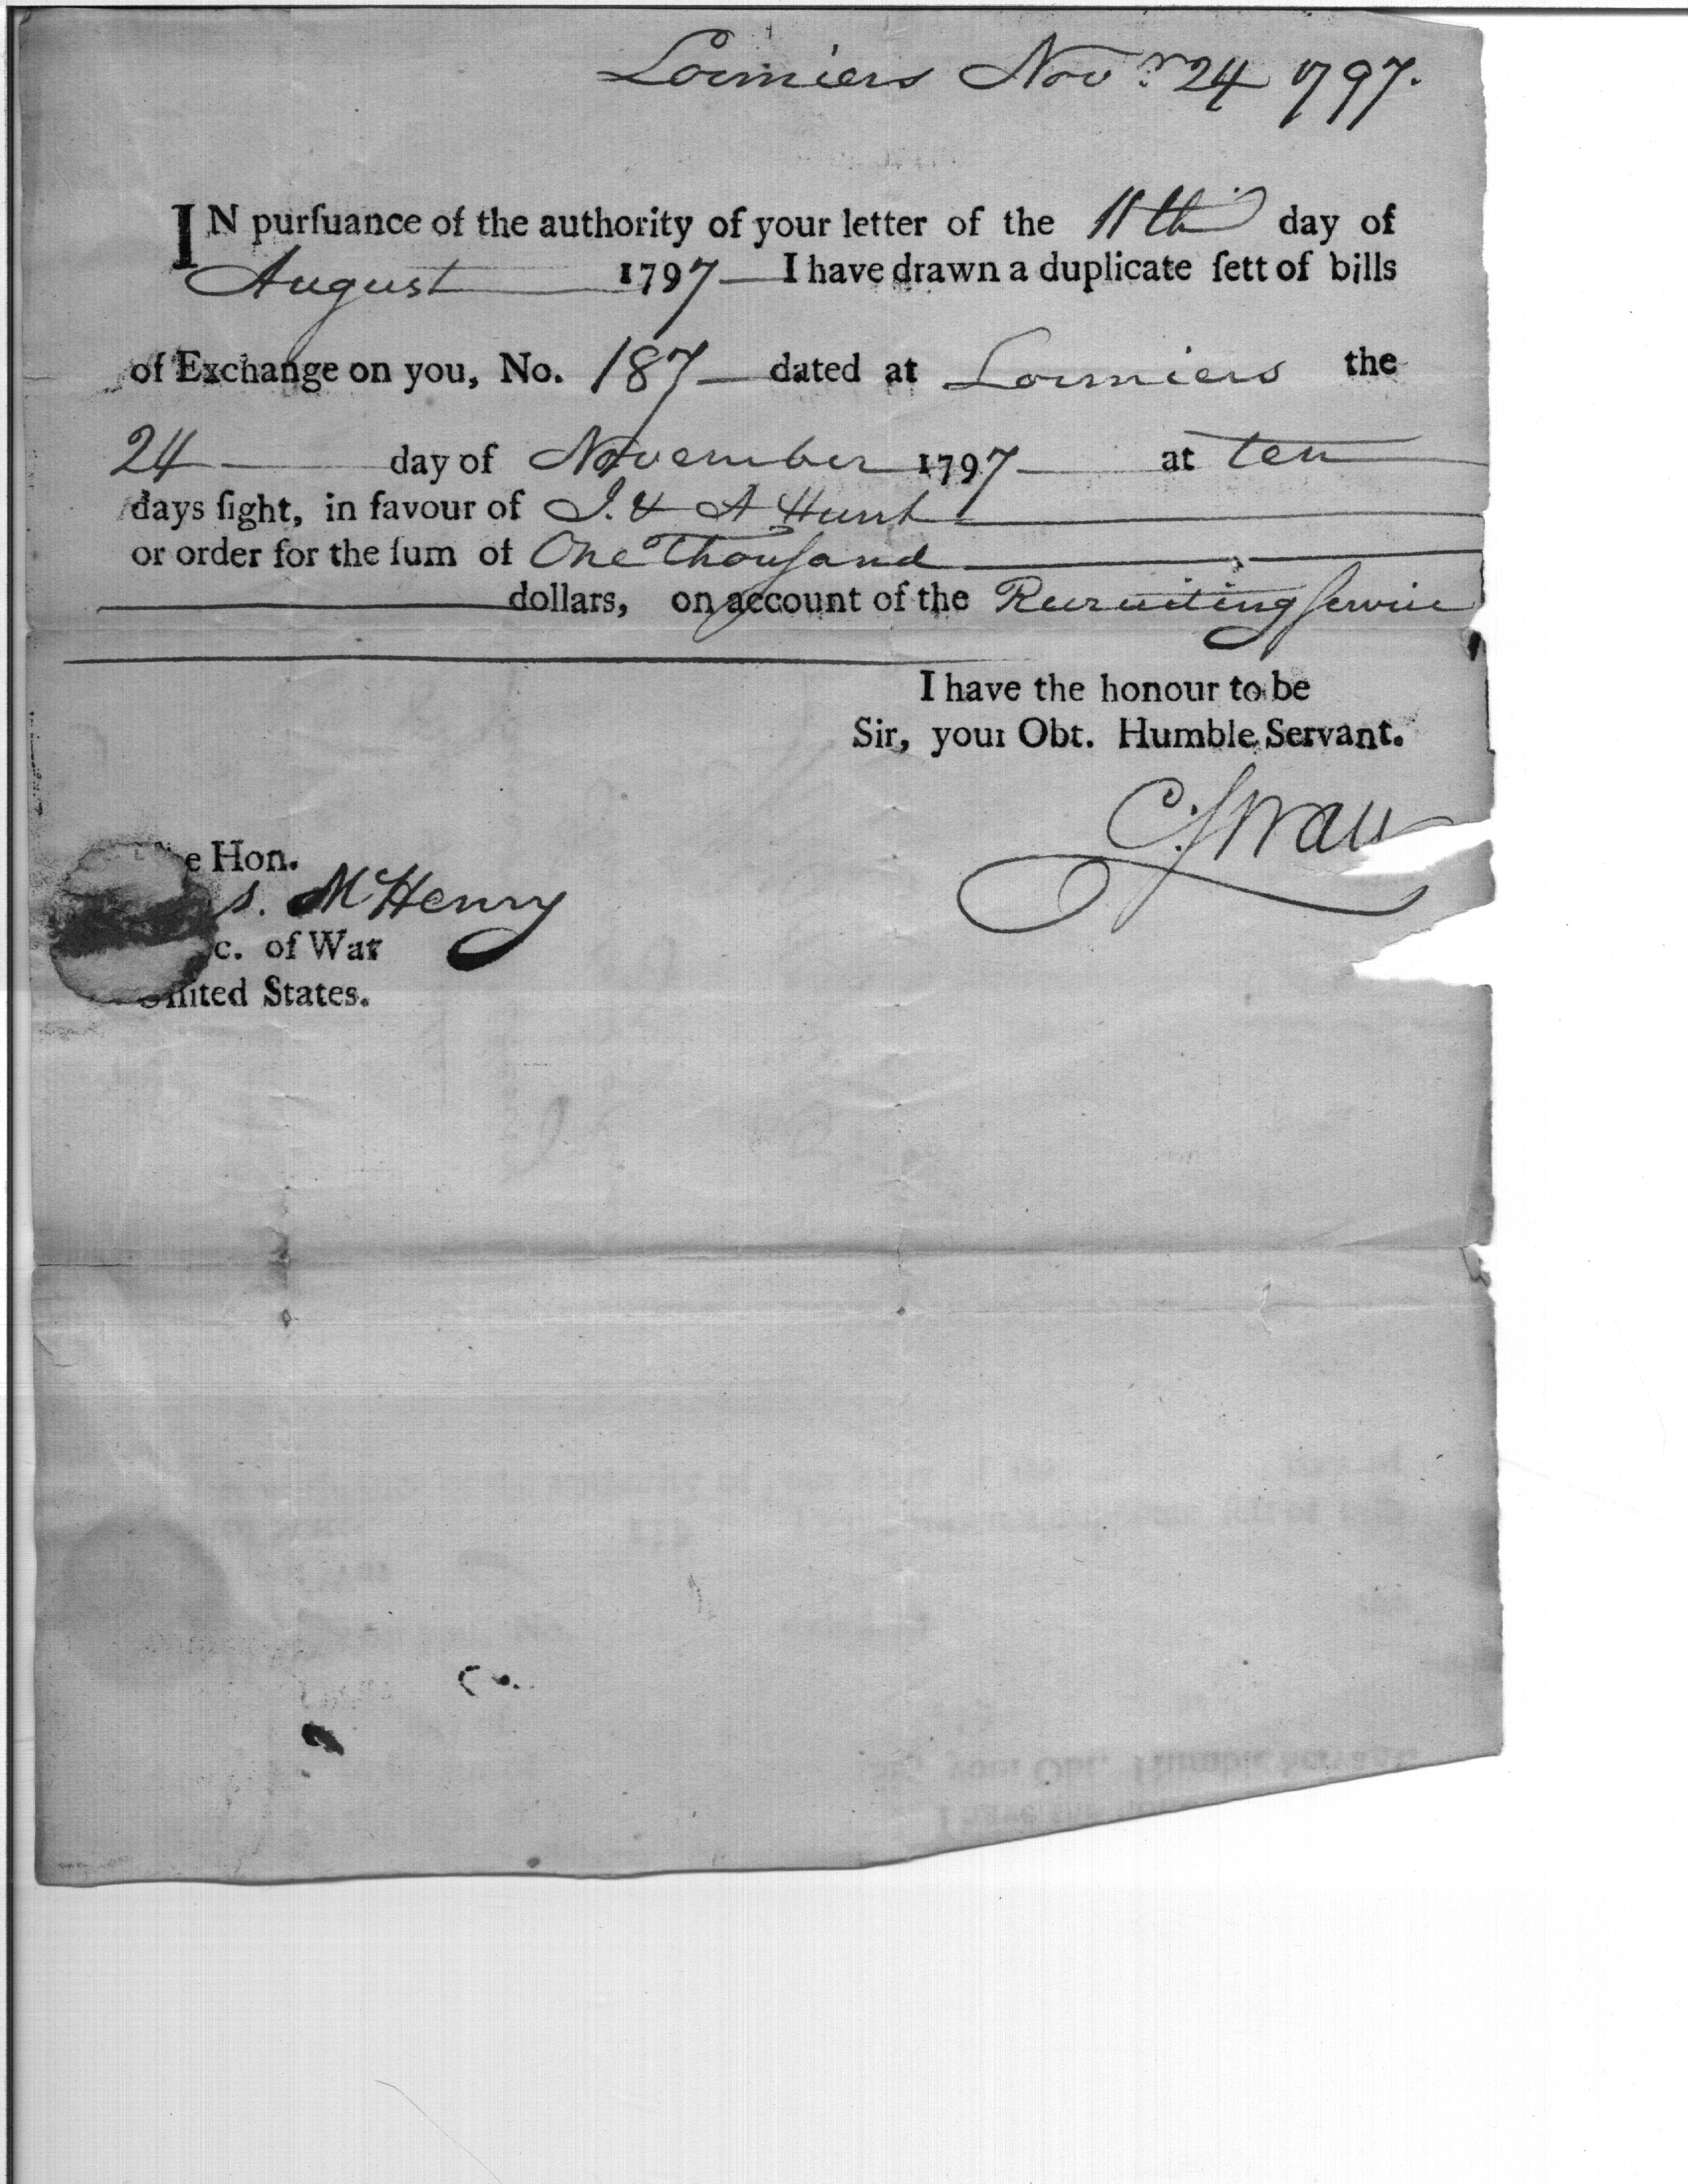 Lormiers Nov.r 24 1797.
IN purſuance of the authority of your letter of the 11th day of
August 1797 I have drawn a duplicate ſett of bills
of Exchange on you, No. 187 dated at Lormiers the
24 day of November 1797 at ten
days ſight, in favour of J. & A Hunt
or order for the ſum of One Thouſand
dollars, on account of the Recruiting ſervice
I have the honour to be
Sir, your Obt. Humble Servant.
C. Swan
e Hon.
s. McHenry
c. of War
United States.